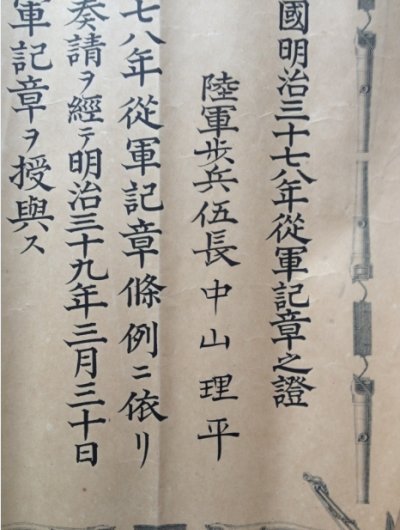 國明治三十七八年從軍記章之證
陸軍步兵伍長中山理平
七八年從軍記章條例ニ依リ
奏請ヲ經テ明治三十九年三月三十日
軍記章ヲ授與ス